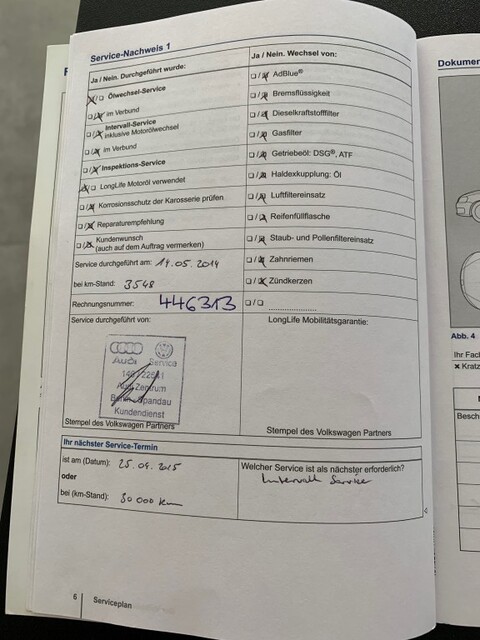 Service-Nachweis 1
Ja / Nein. Durchgeführt wurde:
Ölwechsel-Service
im Verbund
Intervall-Service
inklusive Motorölwechsel
im Verbund
Inspektions-Service
LongLife Motoröl verwendet
Korrosionsschutz der Karosserie prüfen
Reparaturempfehlung
Kundenwunsch
(auch auf dem Auftrag vermerken)
Service durchgeführt am: 19.05.2014
bei km-Stand: 3548
Rechnungsnummer: 446313
Service durchgeführt von:
Audi Service
Audi Zentrum
Berlin Spandau
Kundendienst
Stempel des Volkswagen Partners
Ja / Nein. Wechsel von:
AdBlue®
Bremsflüssigkeit
Dieselkraftstofffilter
Gasfilter
Getriebeöl: DSG®, ATF
Haldexkupplung: Öl
Luftfiltereinsatz
Reifenfüllflasche
Staub- und Pollenfiltereinsatz
Zahnriemen
Zündkerzen
LongLife Mobilitätsgarantie:
Stempel des Volkswagen Partners
Ihr nächster Service-Termin
ist am (Datum): 25.09.2015
oder
bei (km-Stand): 30 000 km
Welcher Service ist als nächster erforderlich?
Intervall Service
6 Serviceplan
Dokumen
Abb. 4
Ihr Fac
Kratz
Besch